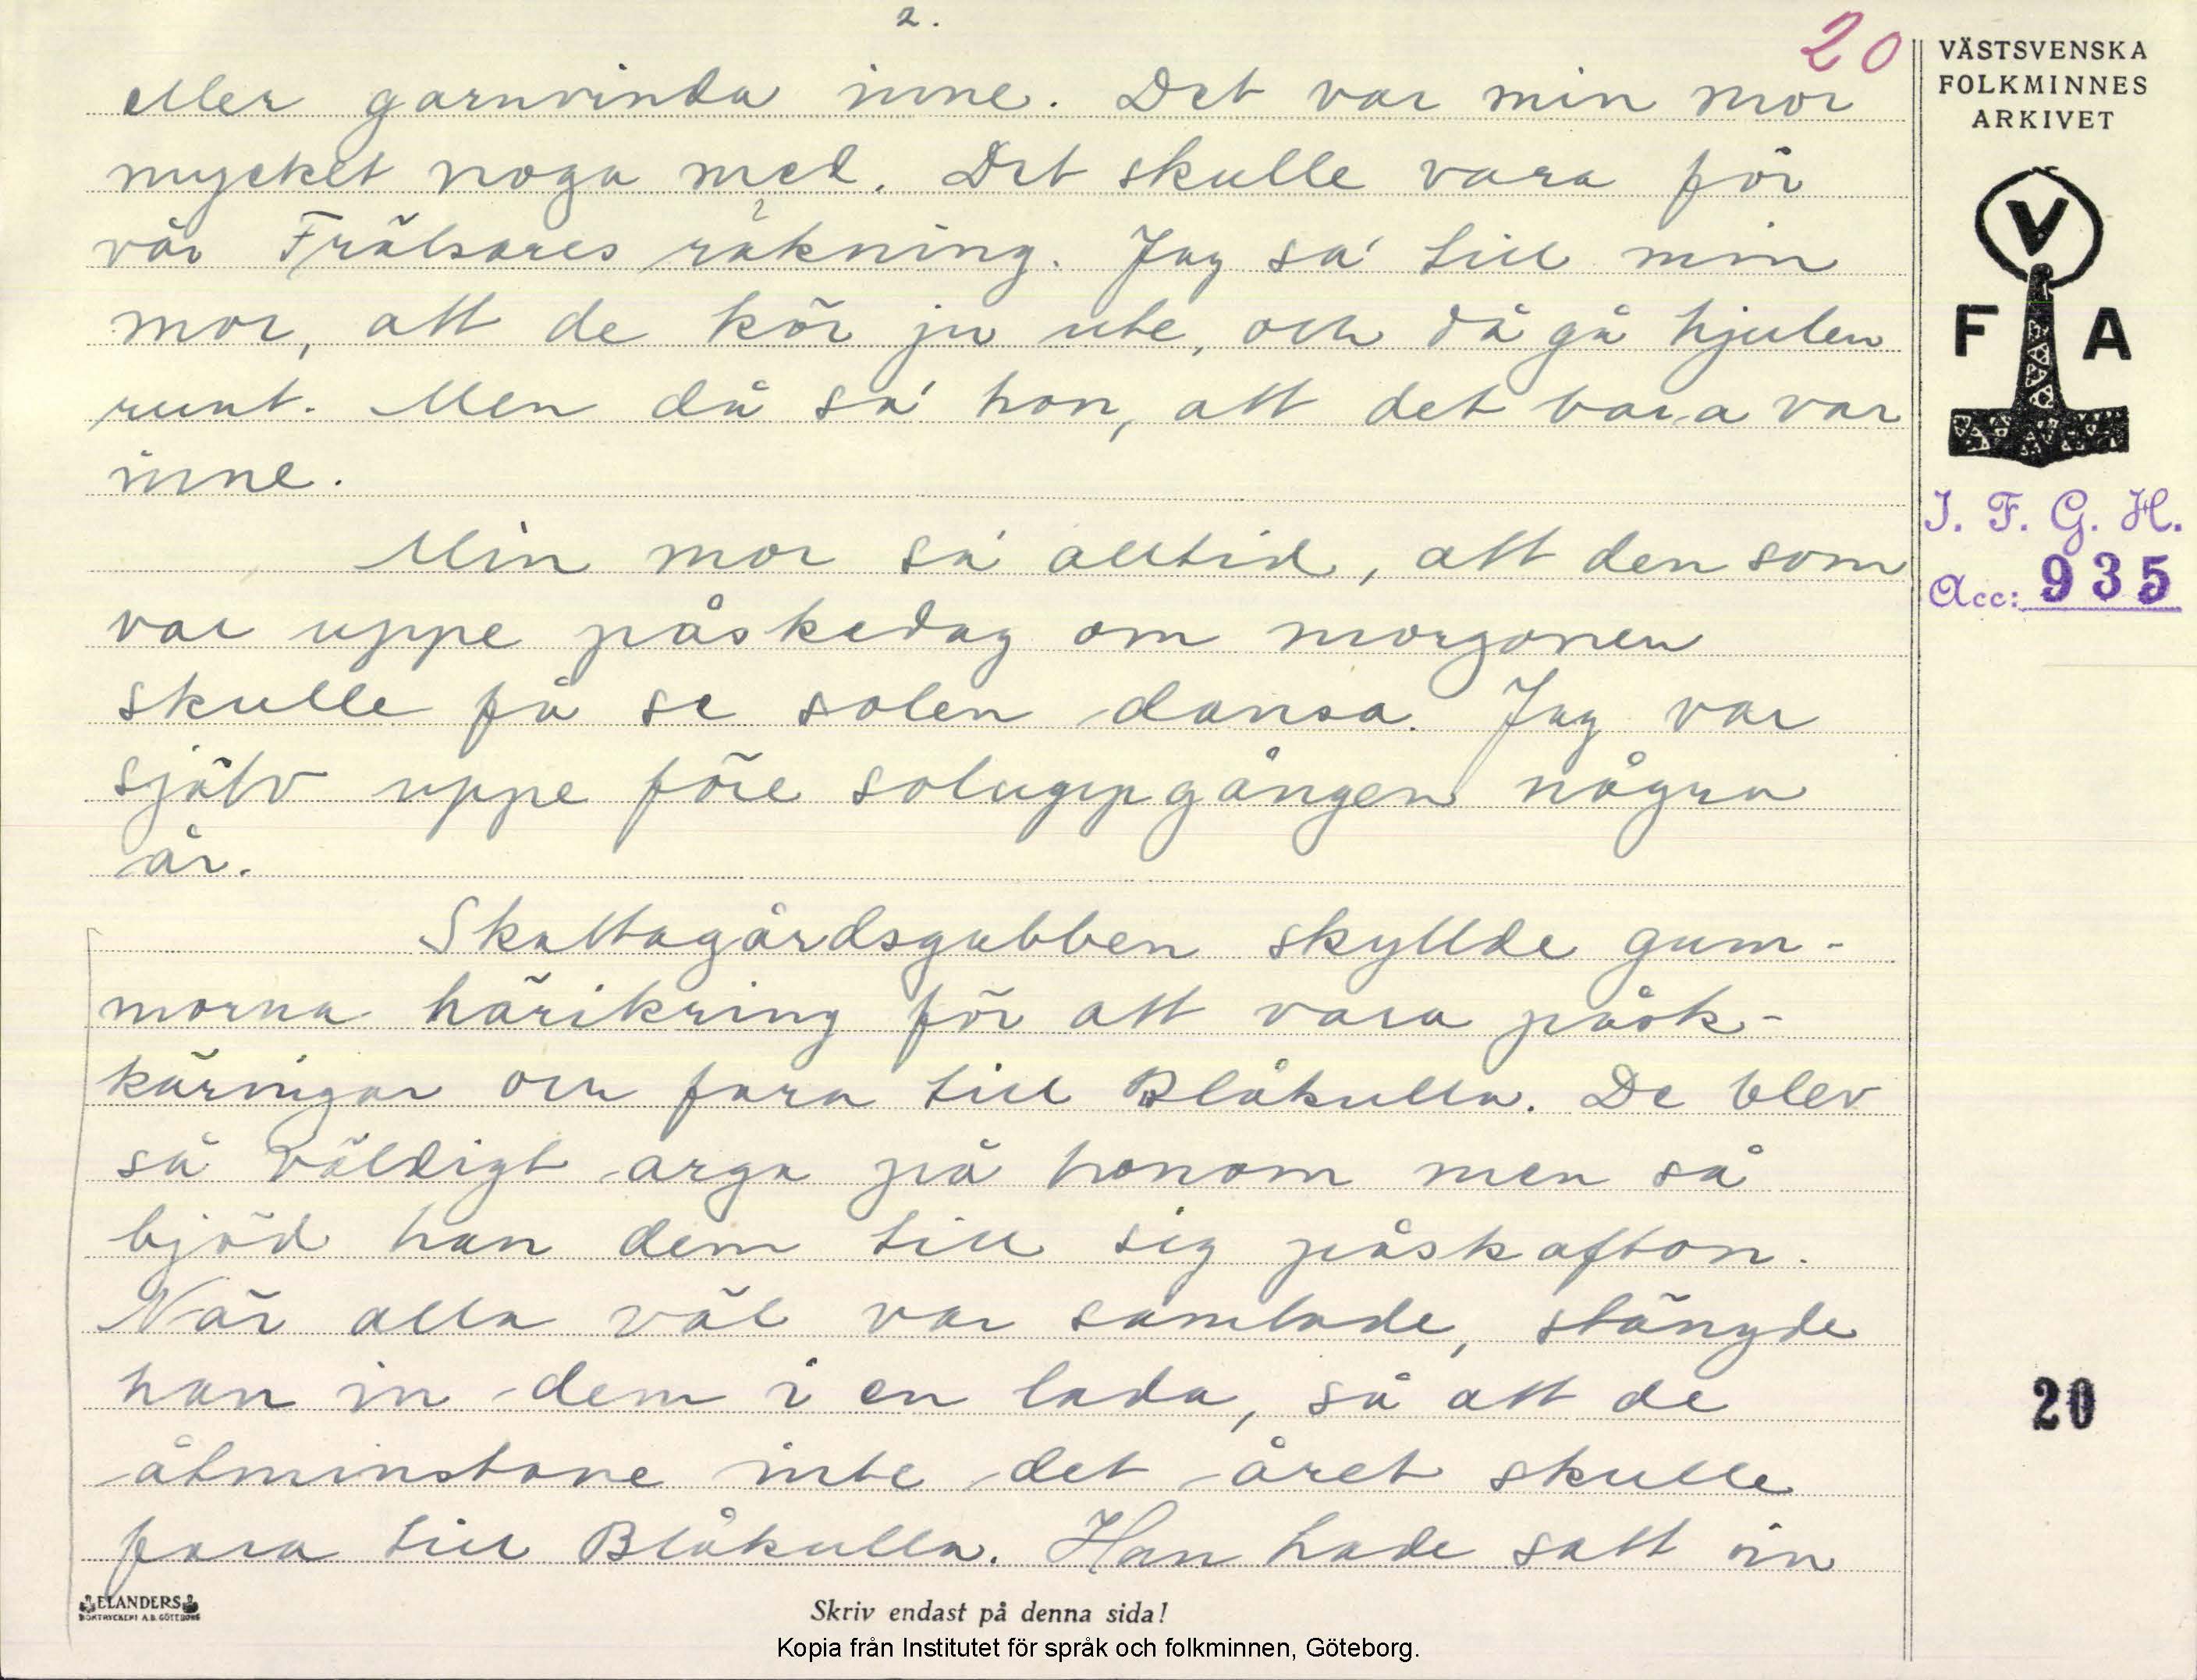 2.
20
eller garnvinda inne. Det var min mor
mycket noga med. Det skulle vara för
vår Frälsares räkning. Jag sa' till min
mor, att de kör ju ute, och då gå hjulen
runt. Men då sa' hon, att det bara var
inne.
Min mor sa' alltid, att den som
var uppe påskedag om morgonen
skulle få se solen dansa. Jag var
själv uppe före soluppgången några
år.
Skattagårdsgubben skyllde gum-
morna härikring för att vara påsk-
käringar och fara till Blåkulla. De blev
så väldigt arga på honom men så
bjöd han dem till sig påskafton.
När alla väl var samlade, stängde
han in dem i en lada, så att de
åtminstone inte det året skulle
fara till Blåkulla. Han hade satt in
VÄSTSVENSKA
FOLKMINNES
ARKIVET
V
F A
I. F. G. H.
Acc: 935
20
ELANDERS
BOKTRYCKERI A.B. GÖTEBORG
Skriv endast på denna sida!
Kopia från Institutet för språk och folkminnen, Göteborg.